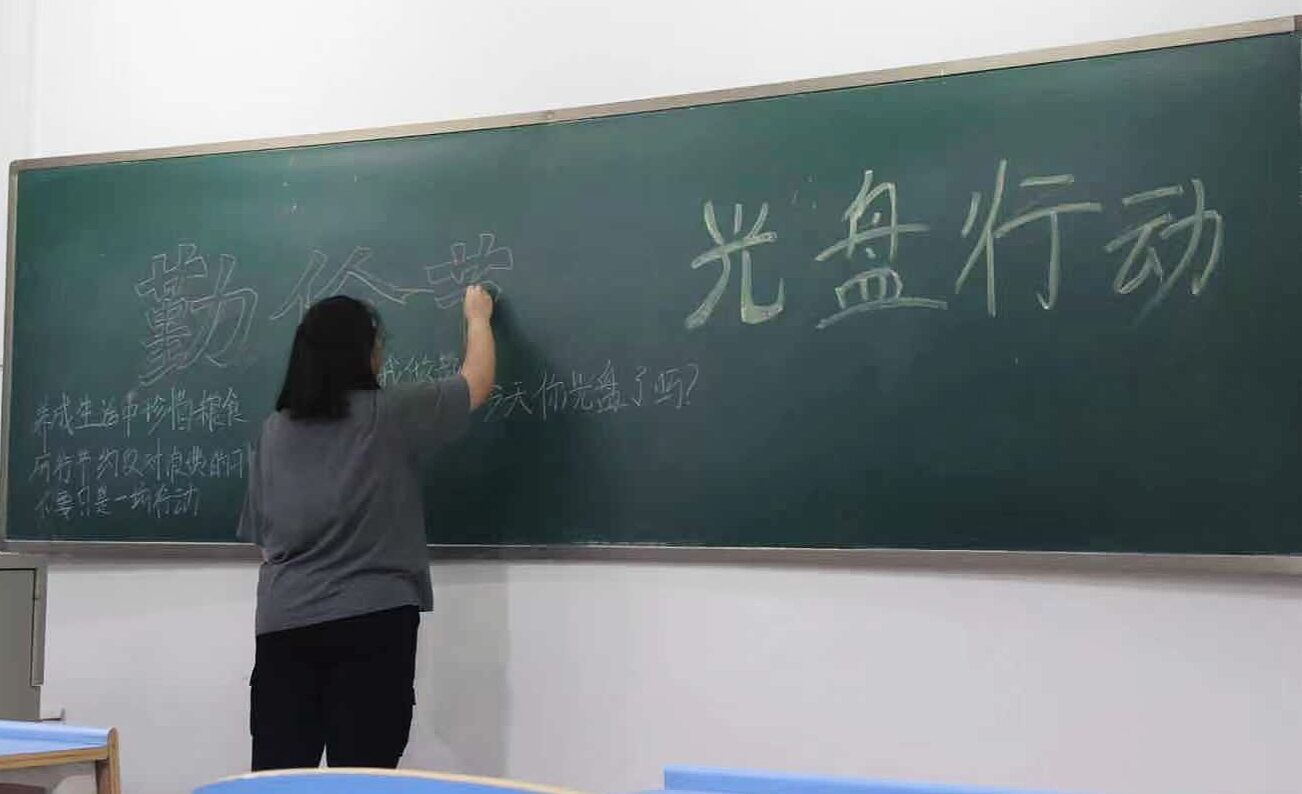 勤俭节
光盘行动
今天你光盘了吗?
养成生活中珍惜粮食
厉行节约反对浪费的习
不要只是一场行动